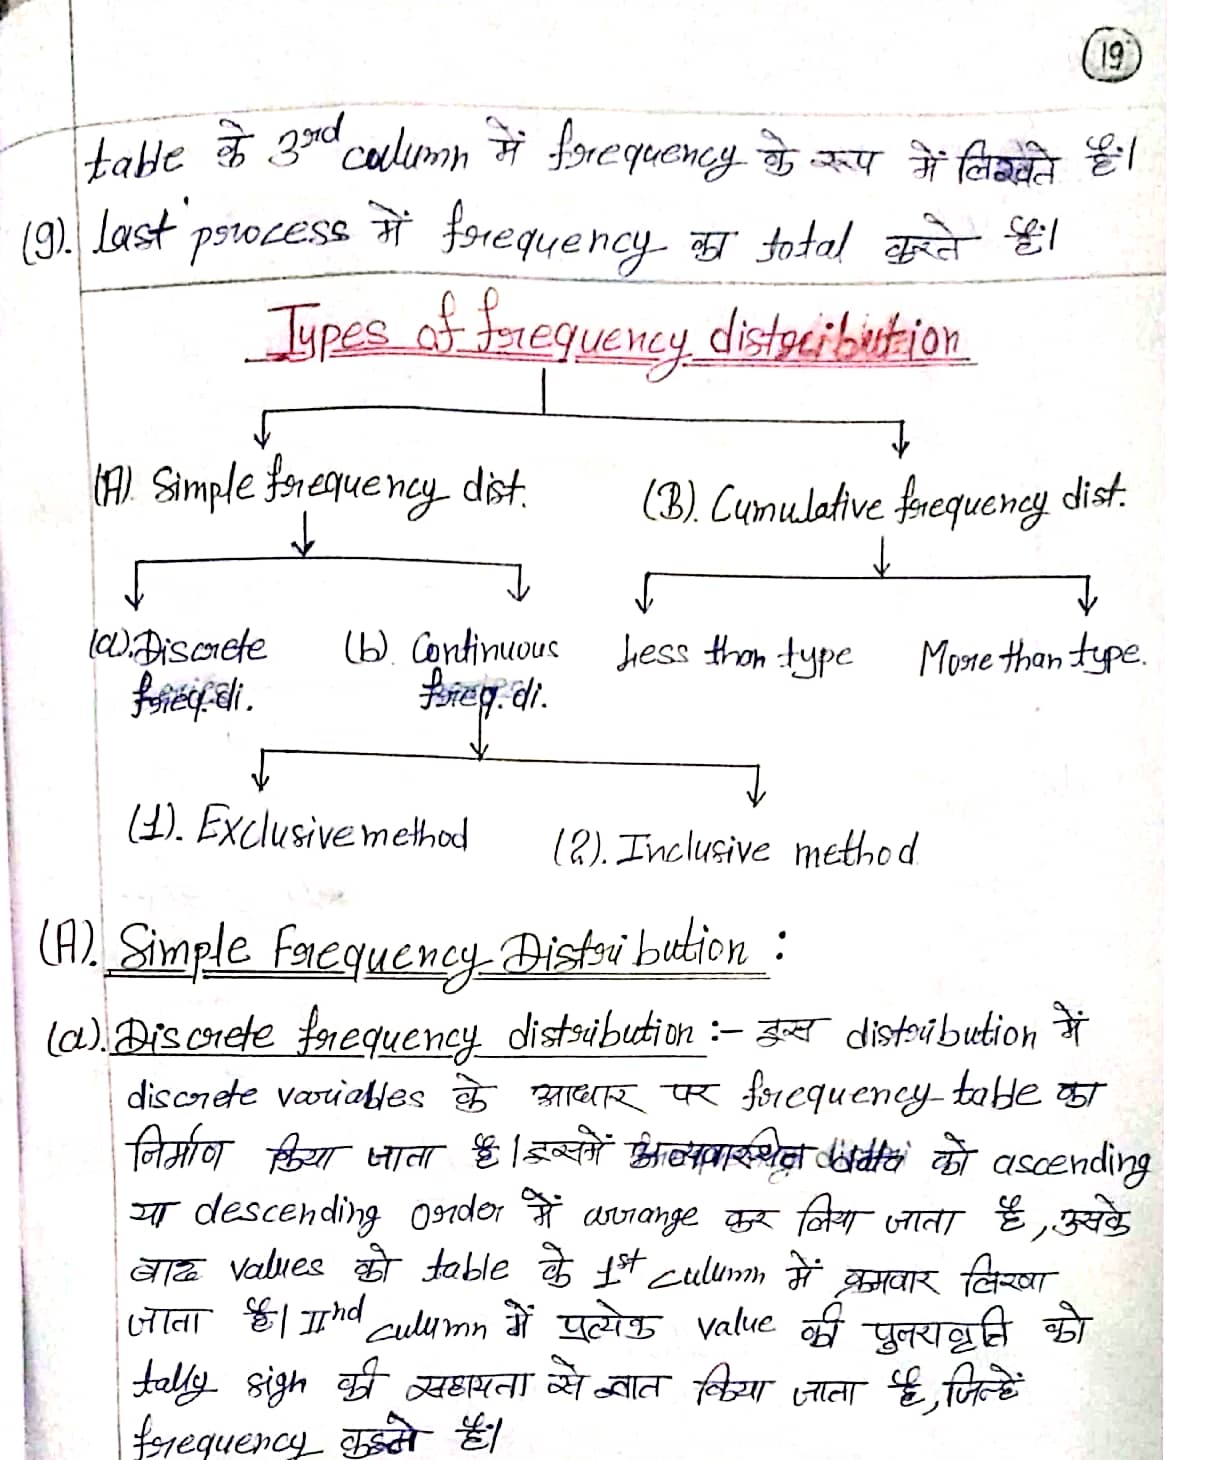 19
table के 3rd column में frequency के रूप में लिखते हैं।
(g). last process में frequency का total करते हैं।
Types of frequency distribution
(A). Simple frequency dist.
(B). Cumulative frequency dist.
(a). Discrete freq. di.
(b). Continuous freq. di.
Less than type
More than type.
(1). Exclusive method
(2). Inclusive method
(A). Simple Frequency Distribution :
(a). Discrete frequency distribution :- इस distribution में
discrete variables के आधार पर frequency table का
निर्माण किया जाता है। इसमें अव्यवस्थित data को ascending
या descending order में arrange कर लिया जाता है, उसके
बाद values को table के 1st culumn में क्रमवार लिखा
जाता है। IInd culumn में प्रत्येक value की पुनरावृति को
tally sign की सहायता से ज्ञात किया जाता है, जिन्हें
frequency कहते हैं।